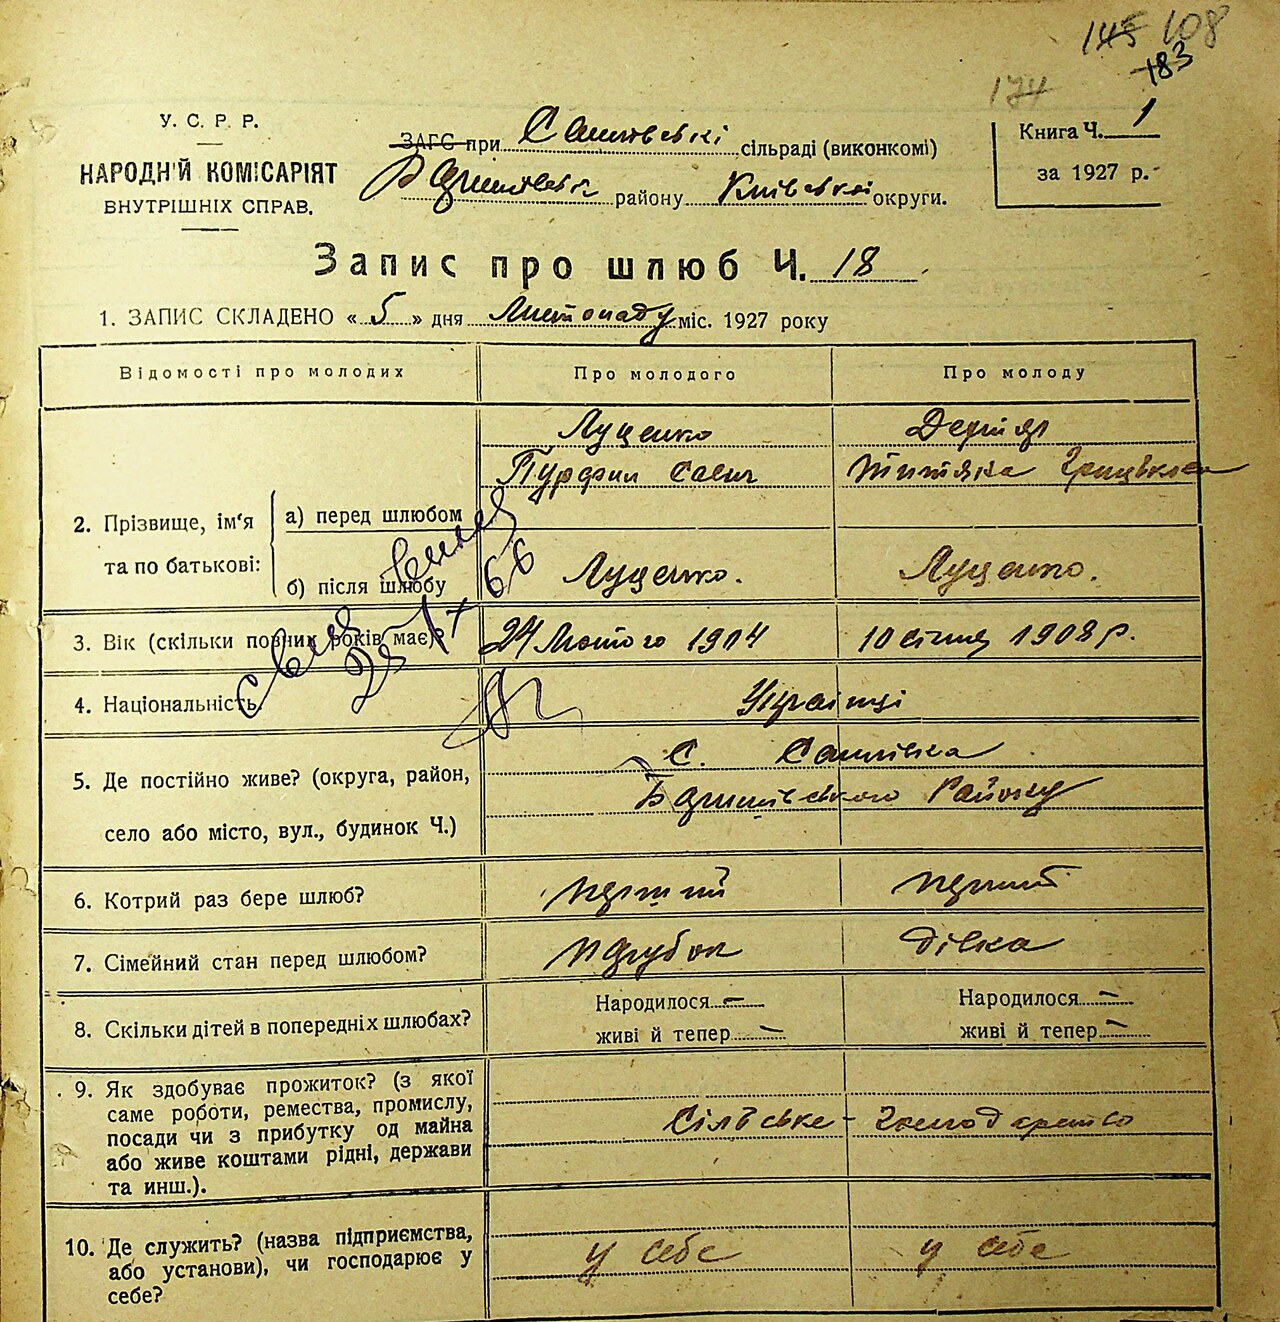 145 108
183
174
У. С. Р. Р.
НАРОДНІЙ КОМІСАРІЯТ
ВНУТРІШНІХ СПРАВ.
ЗАГС при сільраді (виконкомі)
району Київської округи.
Книга Ч. 1
за 1927 р.
Запис про шлюб Ч. 18
1. ЗАПИС СКЛАДЕНО « 5 » дня Листопаду міс. 1927 року
Відомості про молодих
Про молодого
Про молоду
2. Прізвище, ім'я та по батькові:
а) перед шлюбом
Луценко
Савич
б) після шлюбу
Луценко.
Луценко.
3. Вік (скільки повних років має)
24 Лютого 1904
10 січня 1908 р.
4. Національність.
Українці
5. Де постійно живе? (округа, район,
село або місто, вул., будинок Ч.)
С.
Району
6. Котрий раз бере шлюб?
перший
перший
7. Сімейний стан перед шлюбом?
парубок
дівка
8. Скільки дітей в попередніх шлюбах?
Народилося —
живі й тепер —
Народилося —
живі й тепер —
9. Як здобуває прожиток? (з якої
саме роботи, ремества, промислу,
посади чи з прибутку од майна
або живе коштами рідні, держави
та инш.).
Сільське - господарство
10. Де служить? (назва підприємства,
або установи), чи господарює у
себе?
у себе
у себе